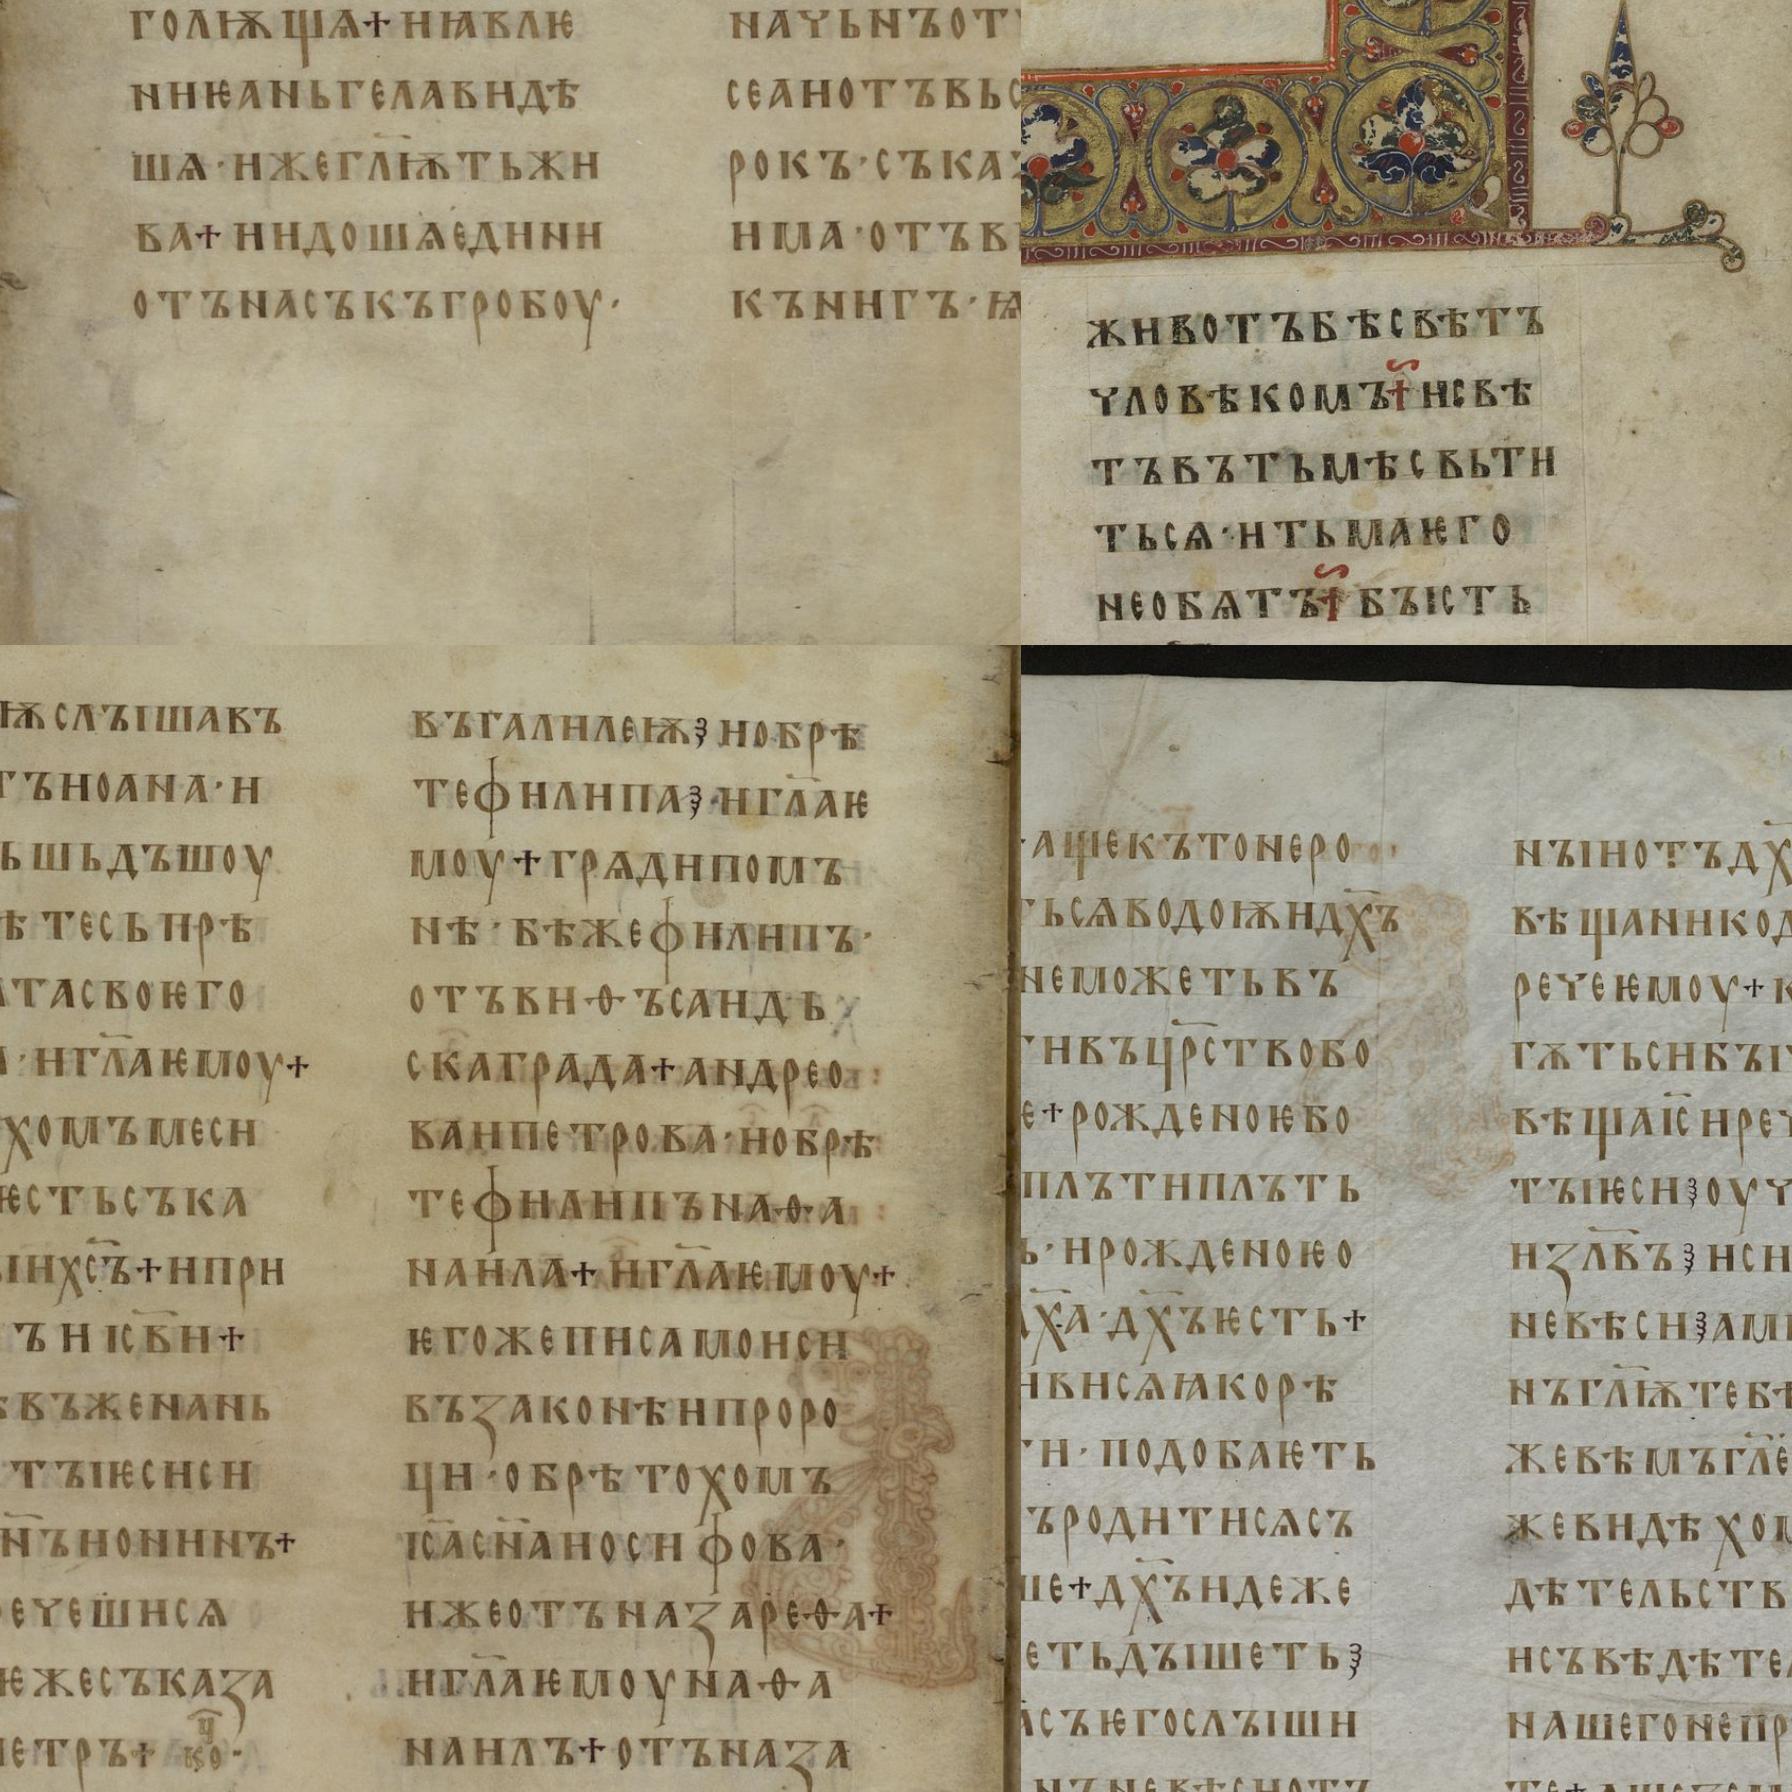 ГОЛѬЩА+НꙖВЛЮ
НИѤАНЬГЕЛАВИДѢ
ША·ИЖЕГЛ҃ѬТЬЖИ
ВА+ИИДОШѦЕДИНИ
ОТЪНАСЪКЪГРОБОУ·
НАЧЬНЪОТ
СЕАНОТЪВЬС
РОКЪ·СЪКАꙀ
ИМА·ОТЪВ
КЪНИГЪ·Ꙗ
ЖИВОТЪБѢСВѢТЪ
ЧЛОВѢКОМЪ+ИСВѢ
ТЪВЪТЬМѢСВЬТИ
ТЬСѦ·ИТЬМАѤГО
НЕОБѦТЪ+БЪІСТЬ
ѬСЛЪІШАВЪ
ТЪИОАНА·И
ЬШЬДЪШОУ
ѢТЕСЬПРѢ
АТАСВОѤГО
А·ИГЛ҃АѤМОУ+
ХОМЪМЕСИ
ѤСТЬСЪКА
ЪІИХС҃Ъ+ИПРИ
ЪИІС҃ВИ+
ВЪЖЕНАНЬ
ТЪІѤСИСИ
Н҃ЪИОНИНЪ+
ЕЧЕШИСѦ
ѤЖЕСЪКАꙀА
ПЕТРЪ+
ВЪГАЛИЛЕѬꙀИОБРѢ
ТЕФИЛИПАꙀ·ИГЛ҃АѤ
МОУ+ГРѦДИПОМЪ
НѢ·БѢЖЕФИЛИПЪ·
ОТЪВИѲЪСАИДЬ
СКАГРАДА+АНДРЕО
ВАИПЕТРОВА·ИОБРѢ
ТЕФИЛИПЪНАѲА
НАИЛА+ИГЛ҃АѤМОУ+
ѤГОЖЕПИСАМОИСИ
ВЪꙀАКОНѢИПРОРО
ЦИ·ОБРѢТОХОМЪ
ІС҃АСН҃АИОСИФОВА·
ИЖЕОТЪНАꙀАРЕѲА+
ИГЛ҃АѤМОУНАѲА
НАИЛЪ+ОТЪНАꙀА
·АЩЕКЪТОНЕРО
ТЬСѦВОДОѬИДХ҃Ъ
НЕМОЖЕТЬВЪ
ТИВЪЦР҃СТВОБО
Е+РОЖДЕНОѤБО
ПЛЪТИПЛЪТЬ
Ь·ИРОЖДЕНОѤО
ДХ҃А·ДХ҃ЪѤСТЬ+
ИВИСѦꙖКОРѢ
ТИ·ПОДОБАѤТЬ
ЪРОДИТИСѦСЪ
ШЕ+ДХ҃ЪИДЕЖЕ
ЕТЬДЪІШЕТЬꙀ
АСЪѤГОСЛЪІШИ
НЪІИОТЪДХ҃
ВѢЩАНИКОД
РЕЧЕѤМОУ+К
ГѪТЬСИБЪІ
ВѢЩАІС҃ИРЕЧ
ТЪІѤСИꙀОУЧ
ИꙀЛ҃ВЪꙀИСИ
НЕВѢСИꙀАМ
НЪГЛ҃ѬТЕБѢ
ЖЕВѢМЪГЛ҃Е
ЖЕВИДѢХОМ
ДѢТЕЛЬСТВ
ИСЪВѢДѢТЕЛ
НАШЕГОНЕПР